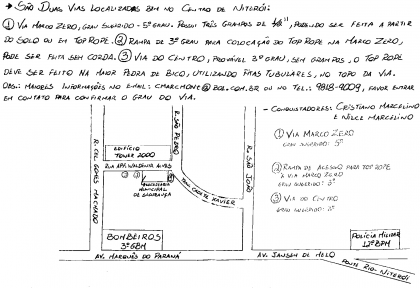 → São Duas Vias localizadas bem no Centro de Niterói:
① Via Marco Zero, grau sugerido - 5º grau. Possui três grampos de 1/2", podendo ser feita a partir
do solo ou em Top Rope. ② Rampa de 3º grau para colocação do Top Rope na Marco Zero,
pode ser feita sem corda. ③ Via do Centro, provável 3º grau, sem grampos, o Top Rope
deve ser feito na maior pedra de bico, utilizando fitas tubulares, no topo da via.
Obs: Maiores informações no email: cmarchone@bol.com.br ou no tel: 9818-9009, favor entrar
em contato para confirmar o grau da via.
- Conquistadores: Cristiano Marcelino
e Nilce Marcelino
① Via Marco Zero
grau sugerido: 5º
② Rampa de acesso para Top Rope
à via Marco Zero
grau sugerido: 3º
③ Via do Centro
grau sugerido: 3º
R. São Pedro
R. São João
Edifício
Tower 2000
R. Cel Gomes Machado
① ② ③
Secretaria
Municipal
de Segurança
Rua Cadete Xavier
Bombeiros
3º GBM
Polícia Militar
12º BPM
Av. Marquês do Paraná
Av. Jansen de Melo
Ponte Rio-Niterói